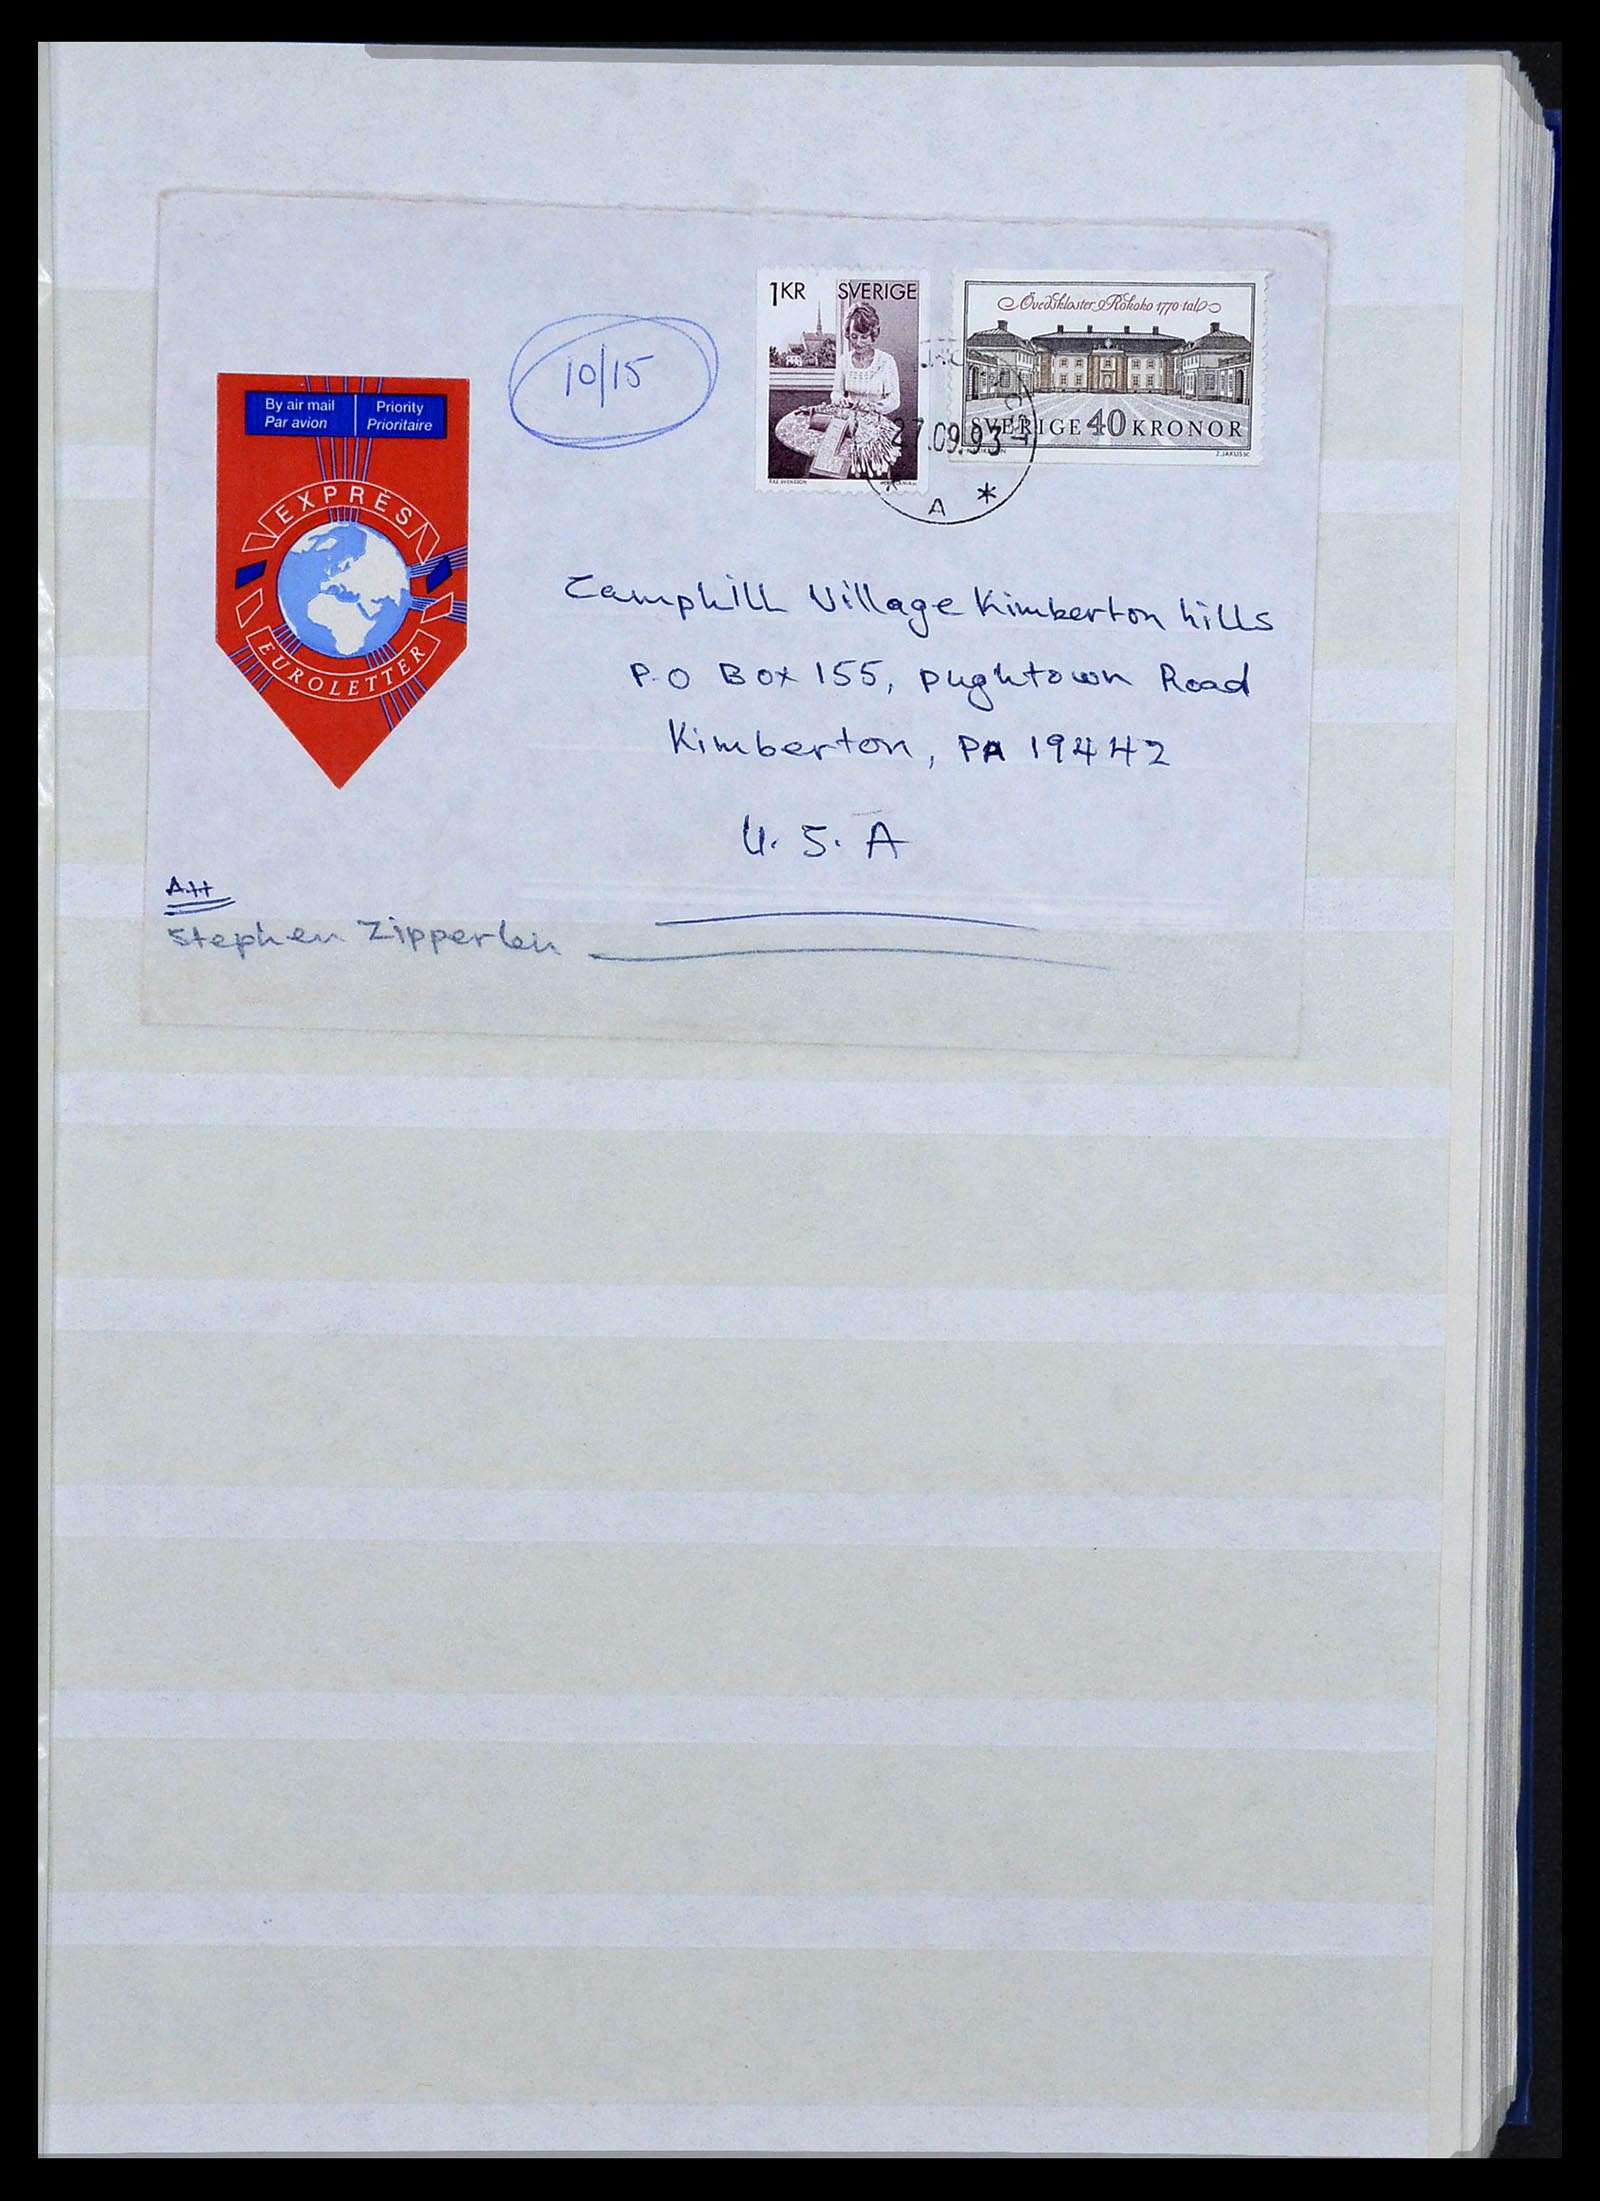 1KR SVERIGE
Övedskloster Rokoko 1770-tal
SVERIGE 40 KRONOR
Z. JAKUS SC
27.09.93
* A *
10/15
By air mail
Par avion
Priority
Prioritaire
EXPRÈS
EUROLETTER
Camphill Village Kimberton hills
P.O Box 155, pughtown Road
Kimberton, PA 19442
U.S.A
Att
Stephen Zipperlen